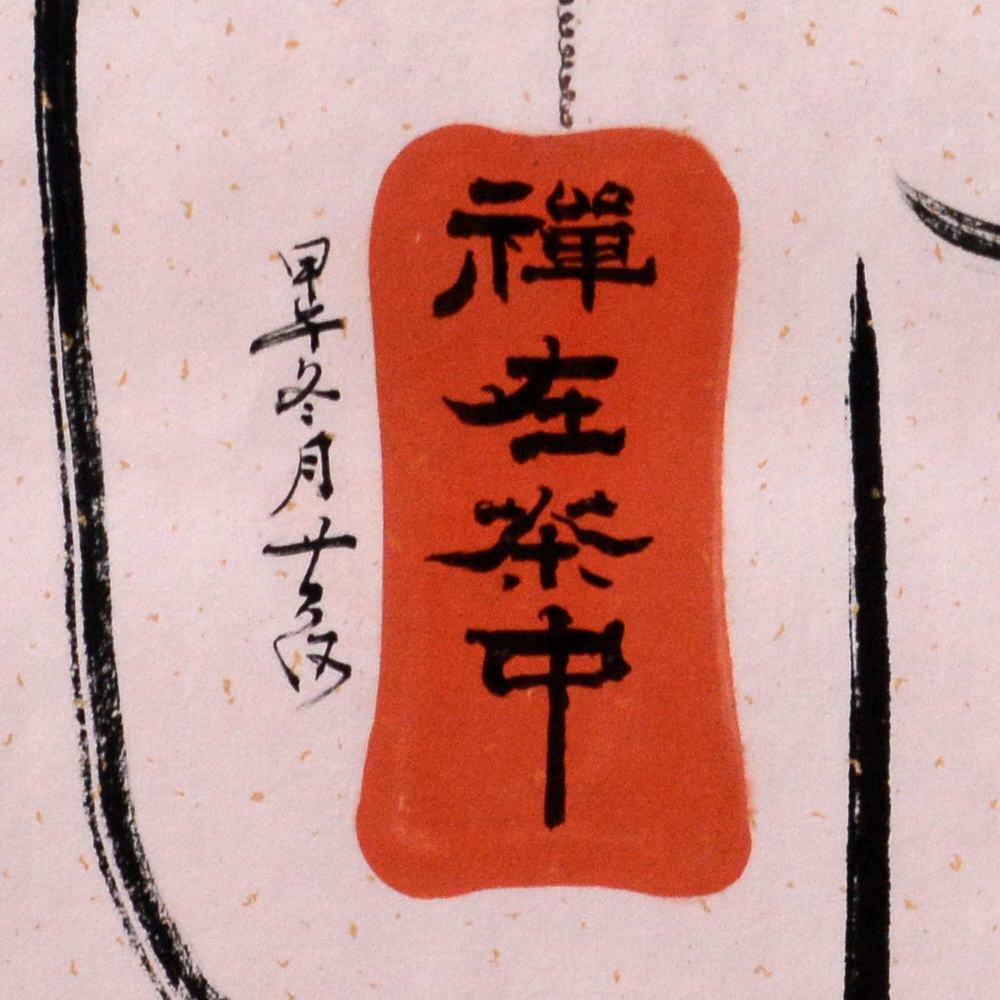 禪在茶中
甲午冬月廿